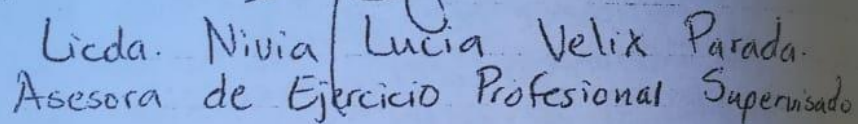 Licda. Nivia Lucia Velix Parada.
Asesora de Ejercicio Profesional Supervisado